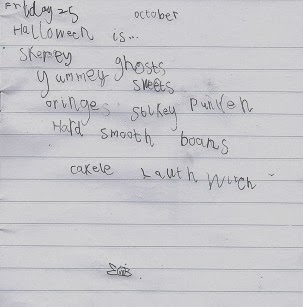 Friday 25 october
Halloween is...
skerey ghosts
yummey sweets
oringe stikey Punken
Hard smooth boans
cakele Lauth witch